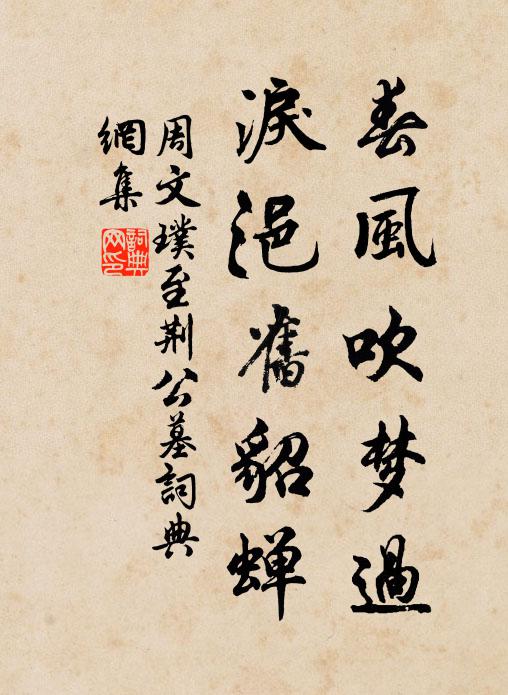 春風吹梦過
淚浥舊貂蟬
周文璞至荆公墓詞典
網集
詞典
网印